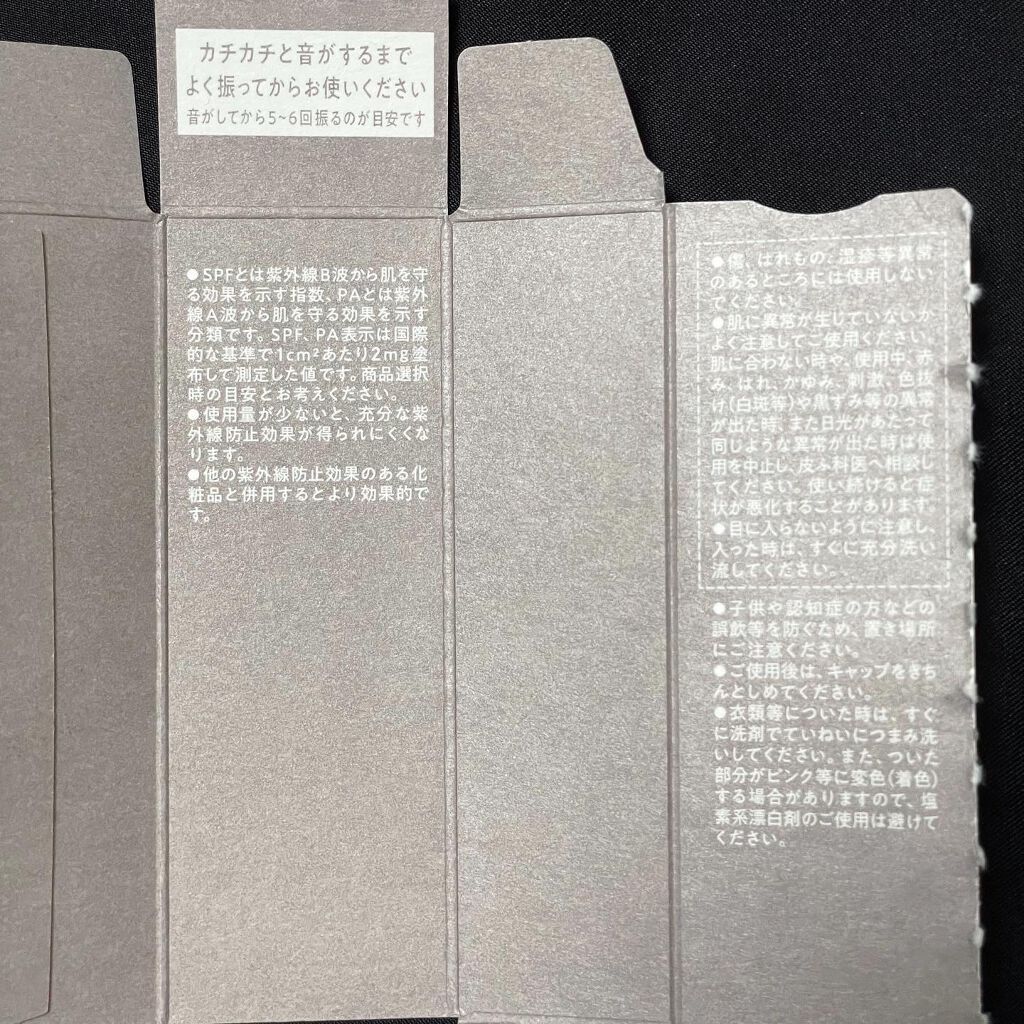 カチカチと音がするまで
よく振ってからお使いください
音がしてから5~6回振るのが目安です
●SPFとは紫外線B波から肌を守
る効果を示す指数、PAとは紫外
線A波から肌を守る効果を示す
分類です。SPF、PA表示は国際
的な基準で1cm²あたり2mg塗
布して測定した値です。商品選択
時の目安とお考えください。
●使用量が少ないと、充分な紫
外線防止効果が得られにくくな
ります。
●他の紫外線防止効果のある化
粧品と併用するとより効果的で
す。
●傷、はれもの、湿疹等異常
のあるところには使用しない
でください。
●肌に異常が生じていないか
よく注意してご使用ください。
肌に合わない時や、使用中、赤
み、はれ、かゆみ、刺激、色抜
け(白斑等)や黒ずみ等の異常
が出た時、また日光があたって
同じような異常が出た時は使
用を中止し、皮ふ科医へ相談し
てください。使い続けると症
状が悪化することがあります。
●目に入らないように注意し、
入った時は、すぐに充分洗い
流してください。
●子供や認知症の方などの
誤飲等を防ぐため、置き場所
にご注意ください。
●ご使用後は、キャップをきち
んとしめてください。
●衣類等についた時は、すぐ
に洗剤でていねいにつまみ洗
いしてください。また、ついた
部分がピンク等に変色(着色)
する場合がありますので、塩
素系漂白剤のご使用は避けて
ください。